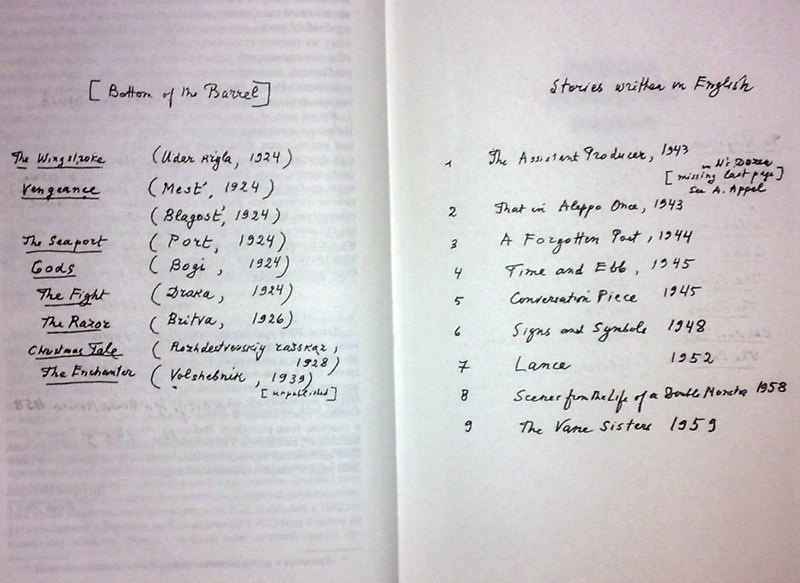 [ Bottom of the Barrel ]
The Wingstroke (Udar Krïla, 1924)
Vengeance (Mest', 1924)
(Blagost', 1924)
The Seaport (Port, 1924)
Gods (Bogi, 1924)
The Fight (Draka, 1924)
The Razor (Britva, 1926)
Christmas Tale (Rozhdestvenskiy rasskaz,
1928)
The Enchanter (Volshebnik, 1939)
[unpublished]
Stories written in English
1 The Assistant Producer, 1943
in N's Dozen
[missing last page]
See A. Appel
2 That in Aleppo Once, 1943
3 A Forgotten Poet, 1944
4 Time and Ebb, 1945
5 Conversation Piece 1945
6 Signs and Symbols 1948
7 Lance 1952
8 Scenes from the Life of a Double Monster 1958
9 The Vane Sisters 1959